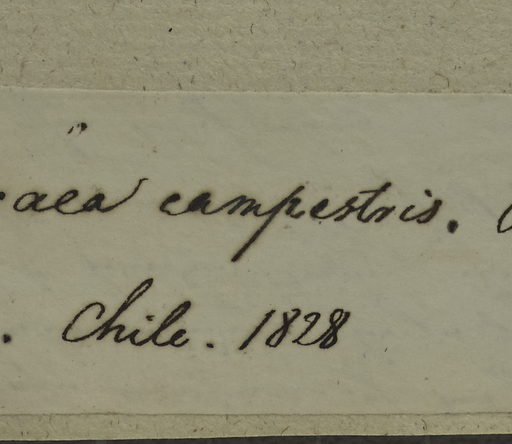 aea campestris.
. Chile. 1828